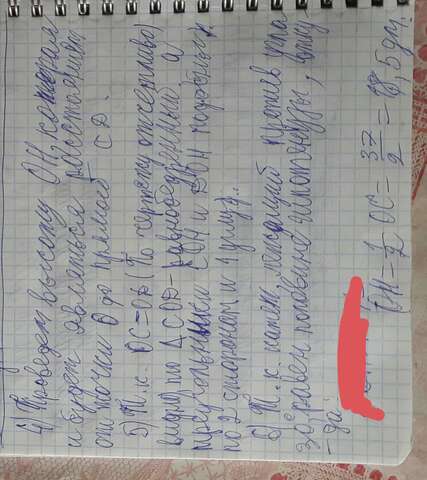 4) Проведем высоту OH, которая
и будет являться расстоянием
от точки O до прямой CD.
5) Т.к. OC=OD (по чертежу отчетливо
видно) то ΔCOD-равнобедренный а
треугольники COH и DOH подобны
по 2 сторонам и 1 углу.
6) Т.к катет, лежащий против угла
30 равен половине гипотенузы, отку-
-да:
OH = 1/2 OC = 37/2 = 18,5 дм.